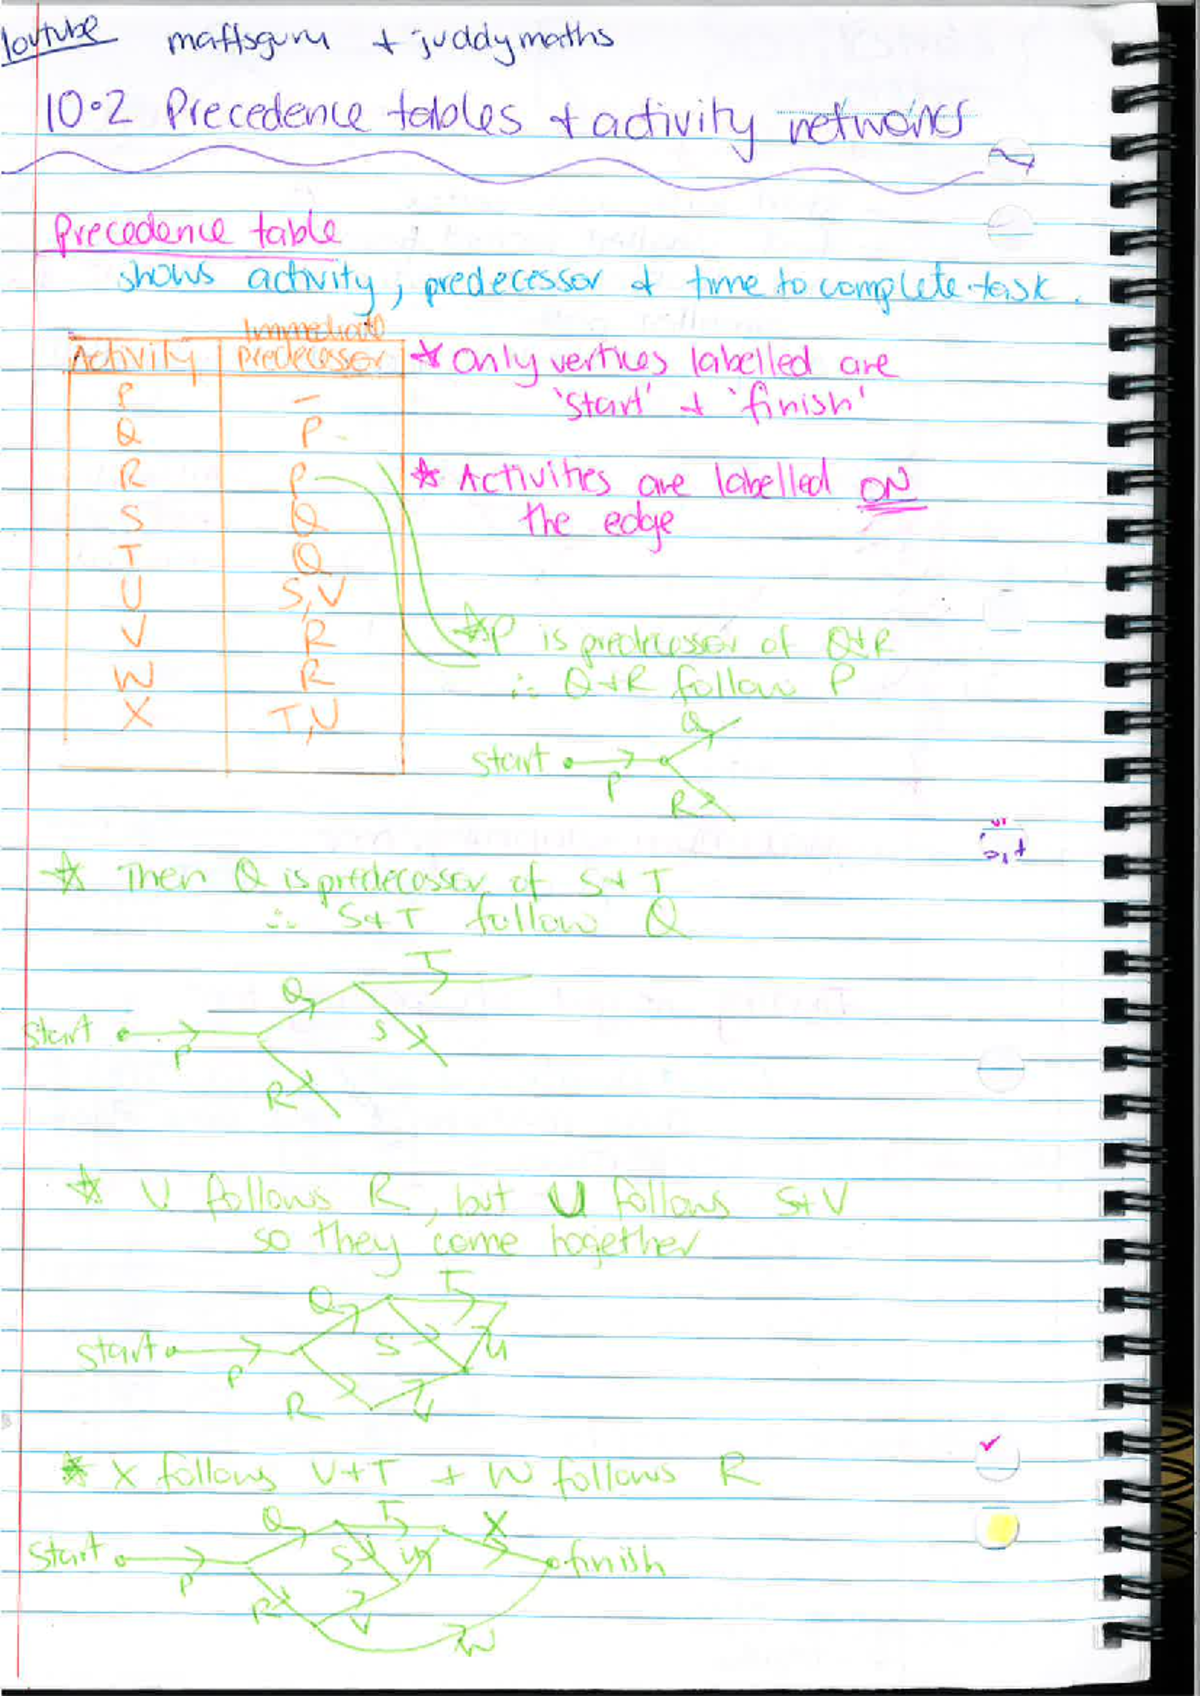 Youtube maffsguru + juddymaths
10.2 Precedence tables + activity networks
Precedence table
shows activity, predecessor & time to complete task.
Activity Immediate predecessor
P –
Q P
R P
S Q
T Q
U S,V
V R
W R
X T,U
* Only vertices labelled are
'start' + 'finish'
* Activities are labelled ON
the edge
*P is predecessor of Q+R
∴ Q+R follow P
start P Q R
* Then Q is predecessor of S+T
∴ S+T follow Q
start P Q R S T
* V follows R, but U follows S+V
so they come together
start P Q R S T U V
* X follows U+T + W follows R
start P Q R S T U V X W finish